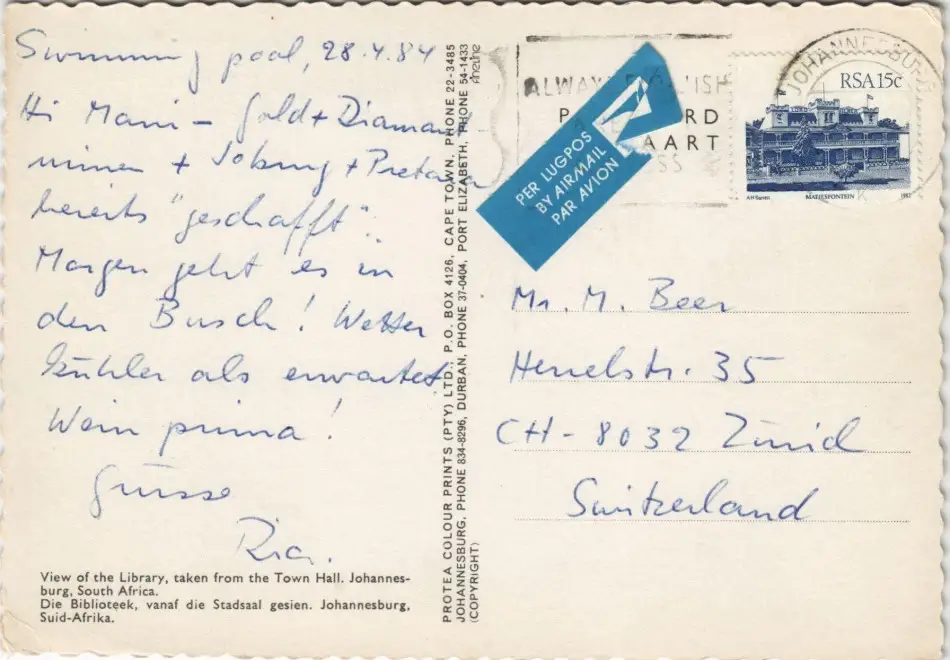 Swimming pool, 28.4.84
Hi Mami - Gold + Diamant
minen + Joburg + Pretoria
bereits "geschafft".
Morgen geht es in
den Busch! Wetter
kühler als erwartet
Wein prima!
Grüsse
Ria.
View of the Library, taken from the Town Hall. Johannes-
burg, South Africa.
Die Biblioteek, vanaf die Stadsaal gesien. Johannesburg,
Suid-Afrika.
PROTEA COLOUR PRINTS (PTY) LTD.: P.O. BOX 4126, CAPE TOWN, PHONE 22-3485
JOHANNESBURG, PHONE 834-8296, DURBAN, PHONE 37-0404, PORT ELIZABETH, PHONE 54-1433
(COPYRIGHT)
PER LUGPOS
BY AIRMAIL
PAR AVION
JOHANNESBURG
RSA 15c
MATJIESFONTEIN
1982
Mr. M. Beer
35
CH-8032 Zürich
Switzerland